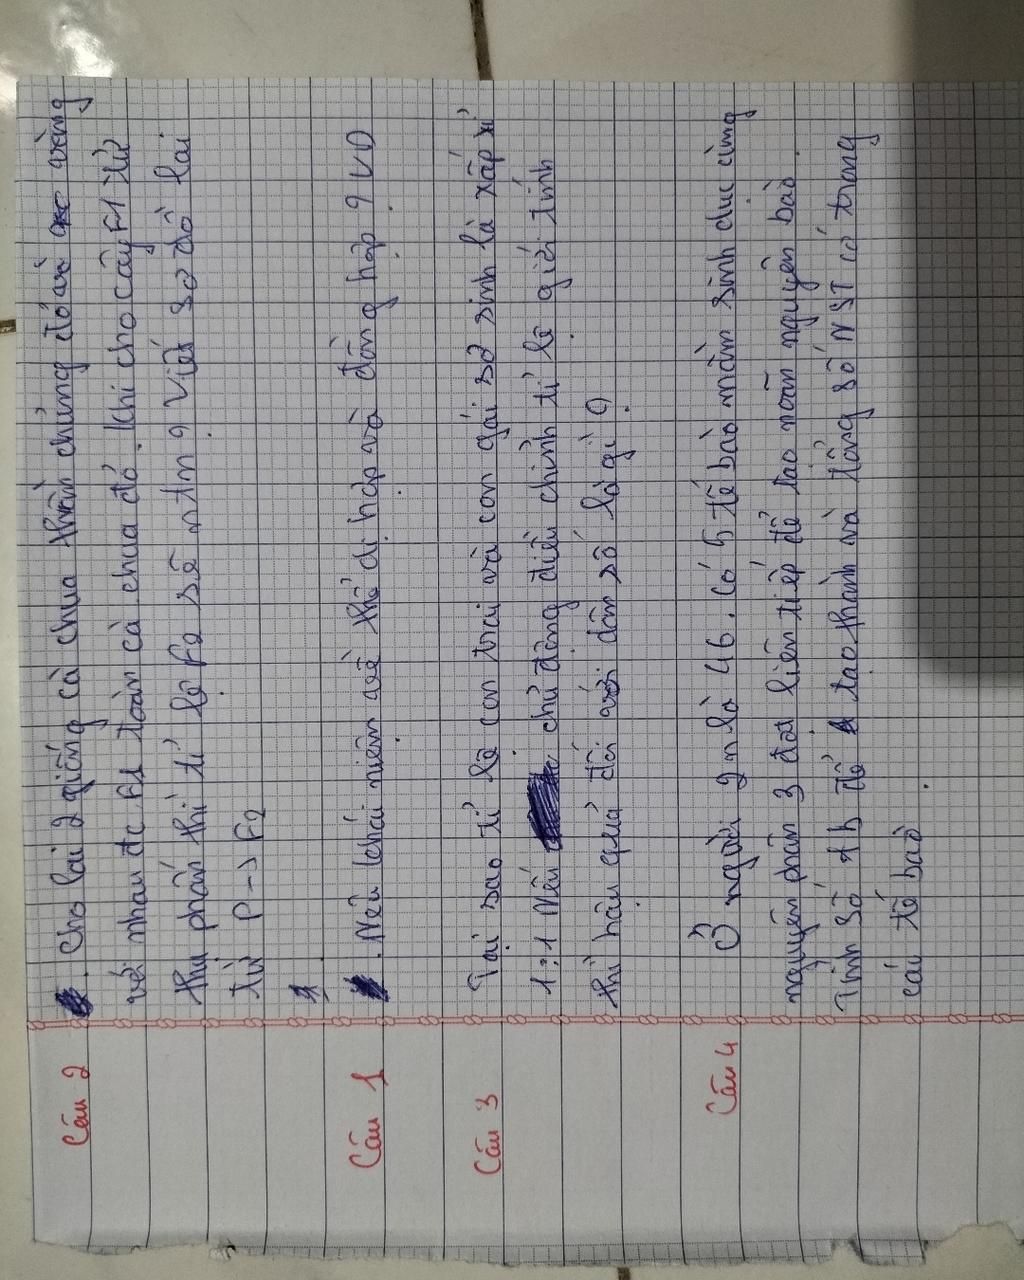 Câu 2 . Cho lai 2 giống cà chua thuần chủng đỏ và vàng
với nhau đc F1 toàn cà chua đỏ. Khi cho cây F1 tự
thụ phấn thì tỉ lệ F2 sẽ ntn ? Viết sơ đồ lai
từ P -> F2
Câu 1 . Nêu khái niệm về thể dị hợp và đồng hợp ? VD
Câu 3 Tại sao tỉ lệ con trai và con gái sơ sinh là xấp xỉ
1:1 Nếu chủ động điều chỉnh tỉ lệ giới tính
thì hậu quả đối với dân số là gì ?
Câu 4 Ở người 2n là 46. Có 5 tế bào mầm sinh dục cùng
nguyên phân 3 đợt liên tiếp để tạo noãn nguyên bào.
Tính số tb để tạo thành và tổng số NST có trong
các tế bào.